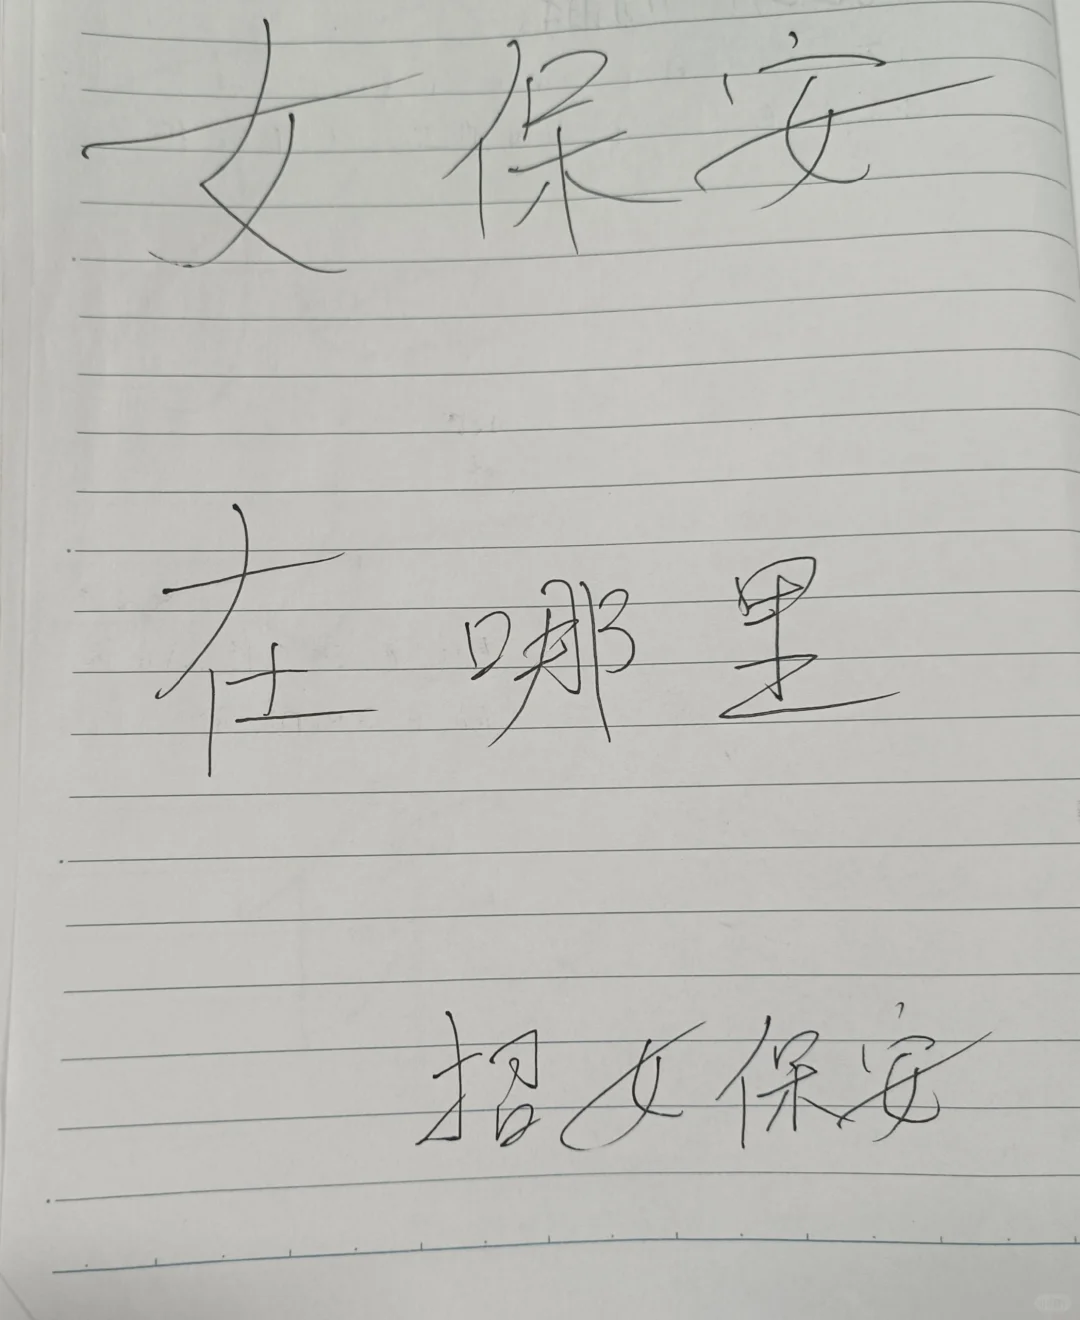 女保安
在哪里
招女保安